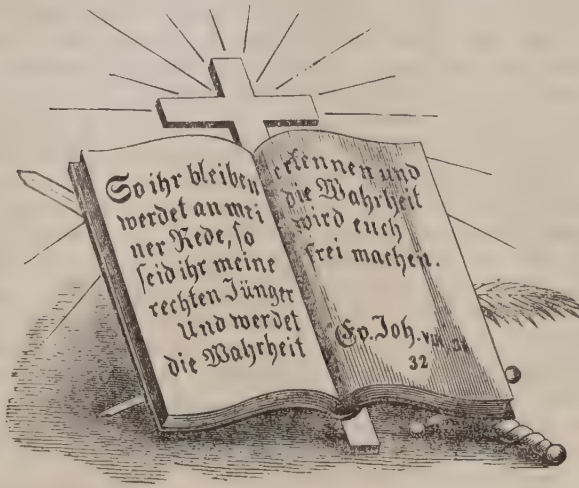 So ihr bleiben
werdet an mei
ner Rede, so
seid ihr meine
rechten Jünger
Und werdet
die Wahrheit
erkennen und
die Wahrheit
wird euch
frei machen.
Ev. Joh.
32